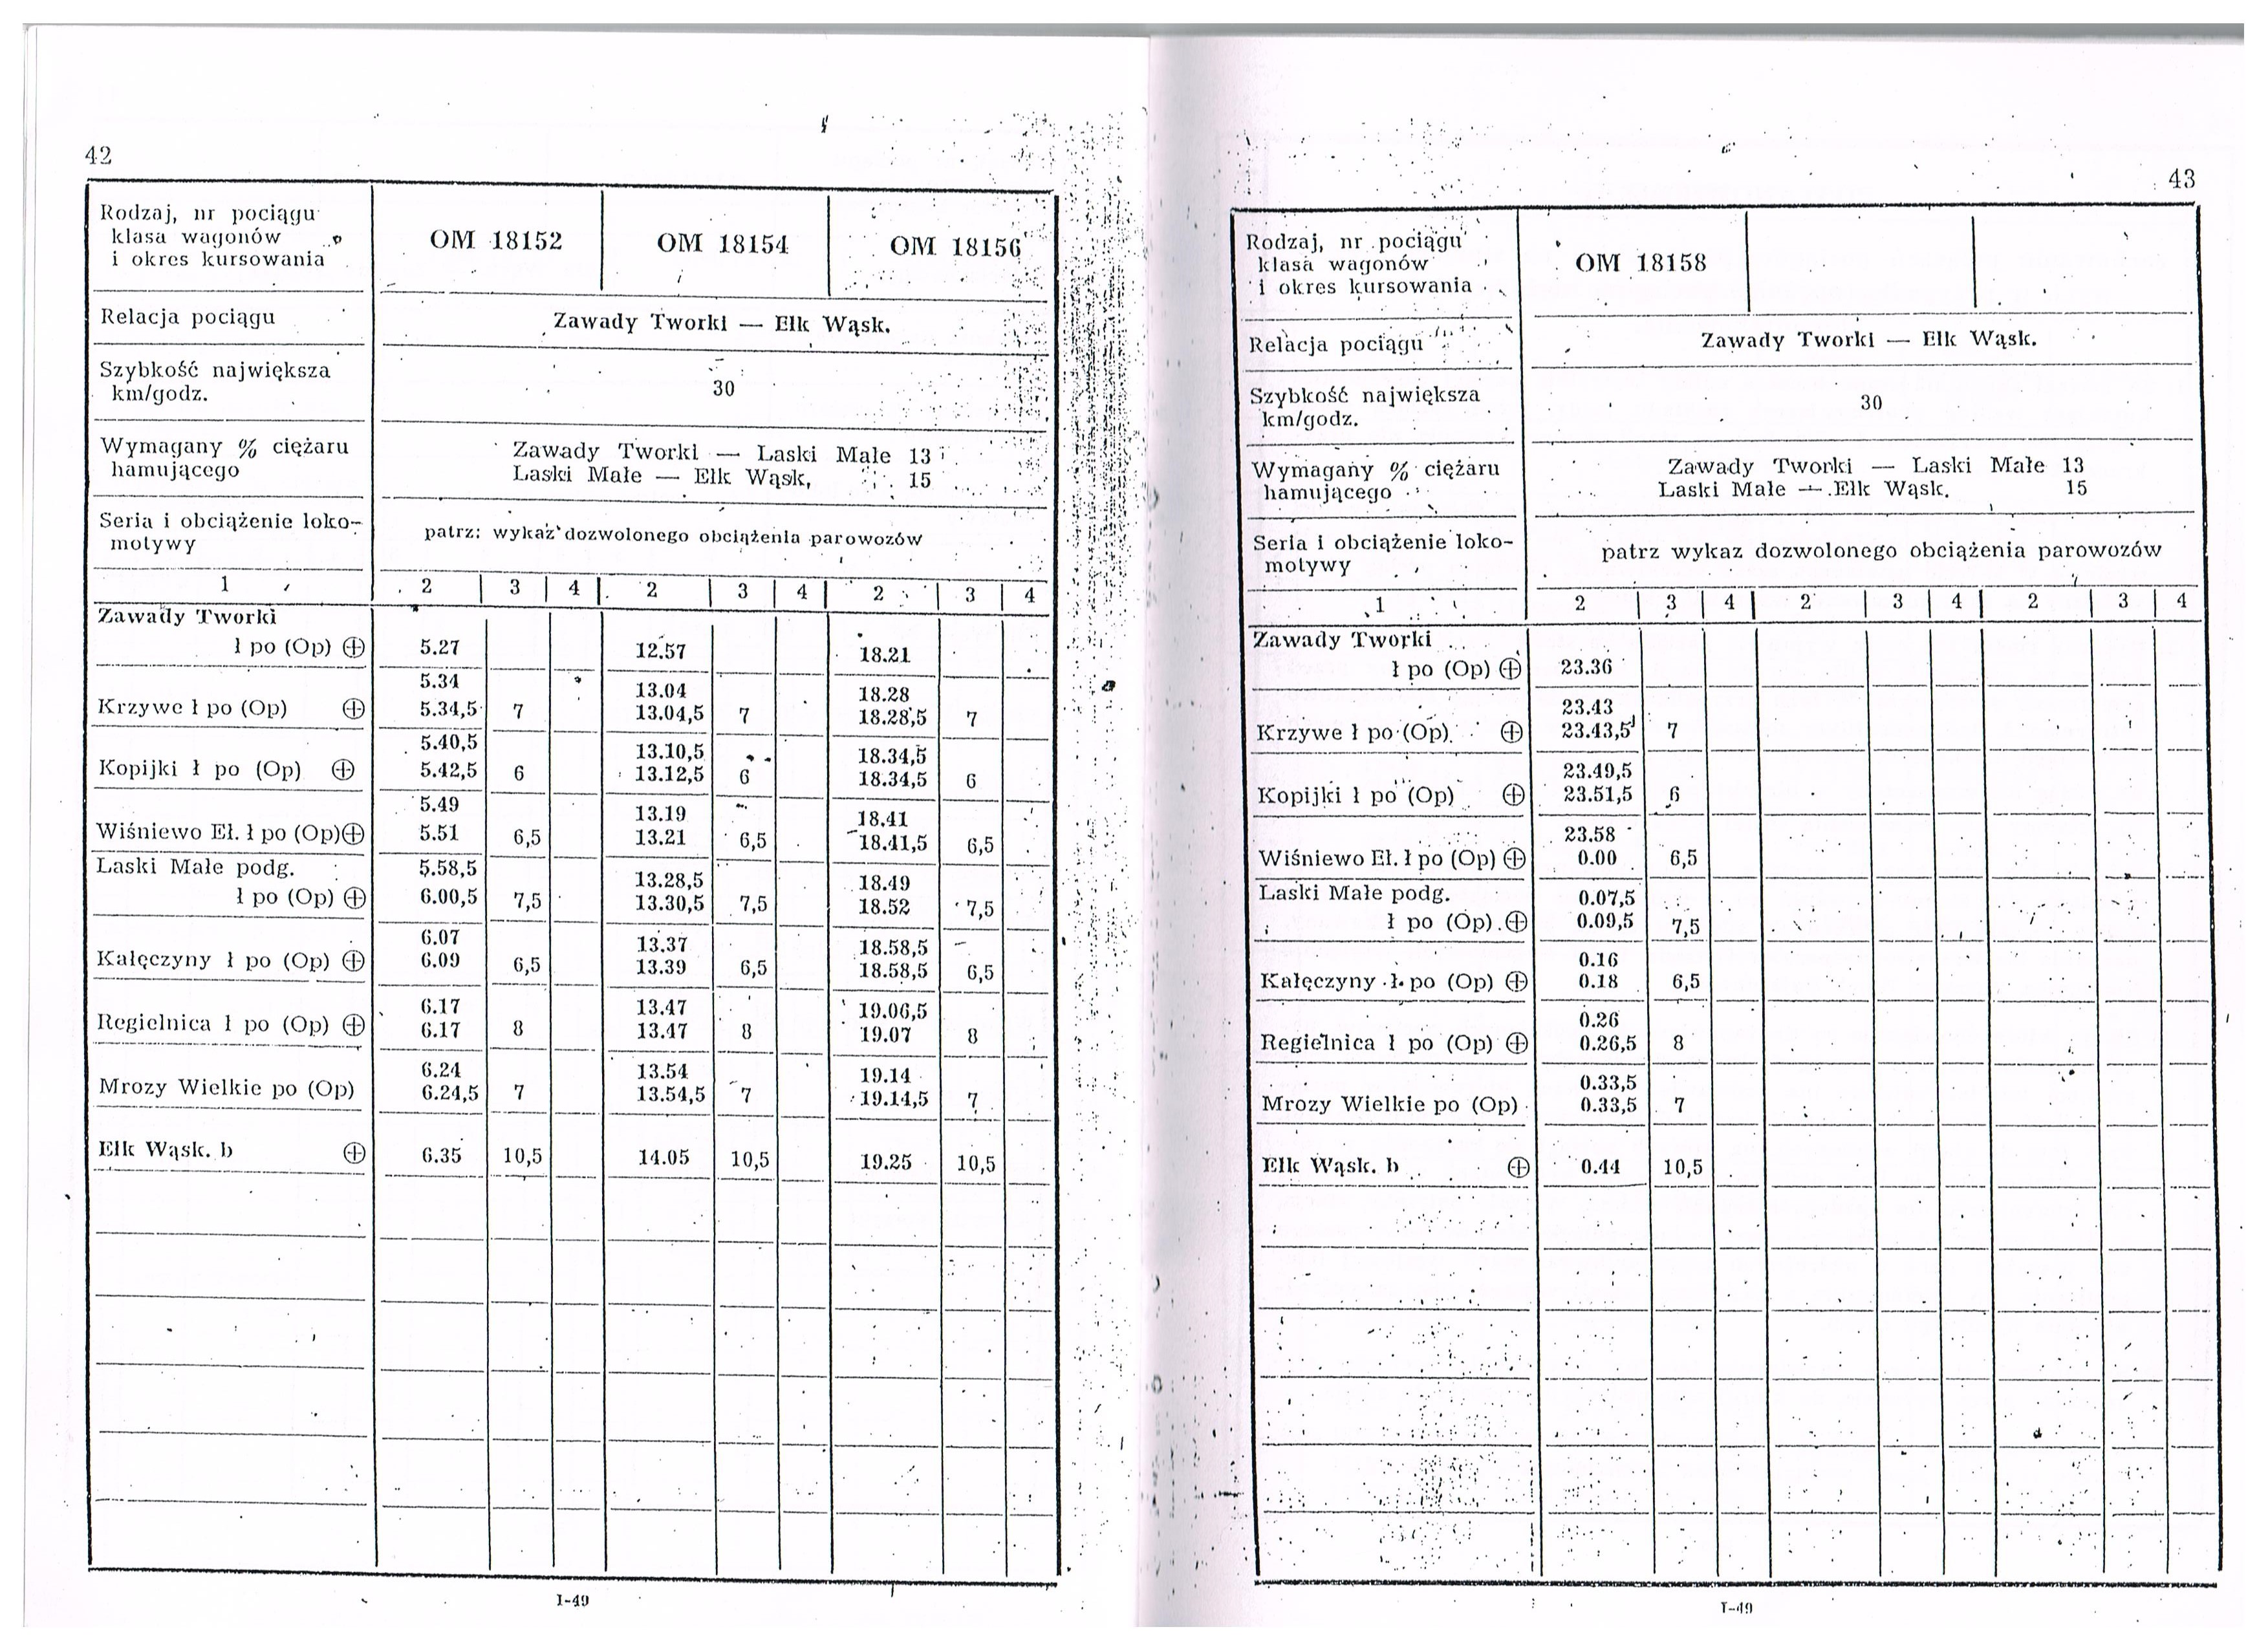 42
Rodzaj, nr pociągu
klasa wagonów
i okres kursowania
OM 18152 OM 18154 OM 18156
Relacja pociągu Zawady Tworki — Ełk Wąsk.
Szybkość największa
km/godz.
30
Wymagany % ciężaru
hamującego
Zawady Tworki — Laski Małe 13
Laski Małe — Ełk Wąsk, 15
Seria i obciążenie loko-
motywy
patrz: wykaz dozwolonego obciążenia parowozów
1 2 3 4 2 3 4 2 3 4
Zawady Tworki
ł po (Op) ⊕ 5.27 12.57 18.21
5.34 13.04 18.28
Krzywe ł po (Op) ⊕ 5.34,5 7 13.04,5 7 18.28,5 7
5.40,5 13.10,5 18.34,5
Kopijki ł po (Op) ⊕ 5.42,5 6 13.12,5 6 18.34,5 6
5.49 13.19 18.41
Wiśniewo Eł. ł po (Op) ⊕ 5.51 6,5 13.21 6,5 18.41,5 6,5
Laski Małe podg. 5.58,5 13.28,5 18.49
ł po (Op) ⊕ 6.00,5 7,5 13.30,5 7,5 18.52 7,5
6.07 13.37 18.58,5
Kałęczyny ł po (Op) ⊕ 6.09 6,5 13.39 6,5 18.58,5 6,5
6.17 13.47 19.06,5
Regielnica ł po (Op) ⊕ 6.17 8 13.47 8 19.07 8
6.24 13.54 19.14
Mrozy Wielkie po (Op) 6.24,5 7 13.54,5 7 19.14,5 7
Ełk Wąsk. b ⊕ 6.35 10,5 14.05 10,5 19.25 10,5
I-49
43
Rodzaj, nr pociągu
klasa wagonów
i okres kursowania
OM 18158
Relacja pociągu Zawady Tworki — Ełk Wąsk.
Szybkość największa
km/godz.
30
Wymagany % ciężaru
hamującego
Zawady Tworki — Laski Małe 13
Laski Małe — Ełk Wąsk. 15
Seria i obciążenie loko-
motywy
patrz wykaz dozwolonego obciążenia parowozów
1 2 3 4 2 3 4 2 3 4
Zawady Tworki
ł po (Op) ⊕ 23.36
23.43
Krzywe ł po (Op). ⊕ 23.43,5 7
23.49,5
Kopijki ł po (Op) ⊕ 23.51,5 6
23.58
Wiśniewo Eł. ł po (Op) ⊕ 0.00 6,5
Laski Małe podg. 0.07,5
ł po (Op) ⊕ 0.09,5 7,5
0.16
Kałęczyny ł. po (Op) ⊕ 0.18 6,5
0.26
Regielnica ł po (Op) ⊕ 0.26,5 8
0.33,5
Mrozy Wielkie po (Op) 0.33,5 7
Ełk Wąsk. b ⊕ 0.44 10,5
I-49